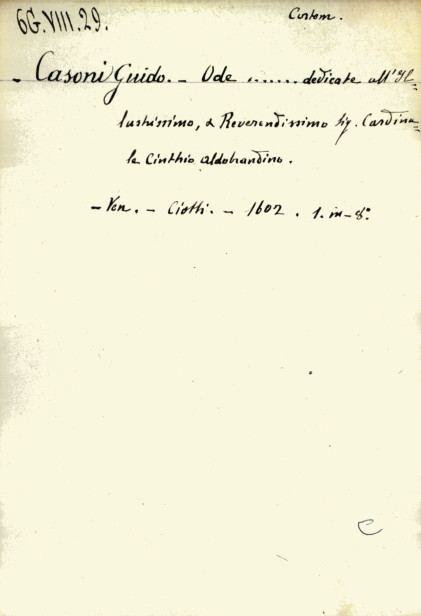 6G.VIII.29.
Custom.
- Casoni Guido. - Ode ....... dedicate all' Il=
lustrissimo, & Reverendissimo Sig. Cardina=
le Cinthio aldobrandino.
- Ven. - Ciotti. - 1602. 1. in-8°.
C